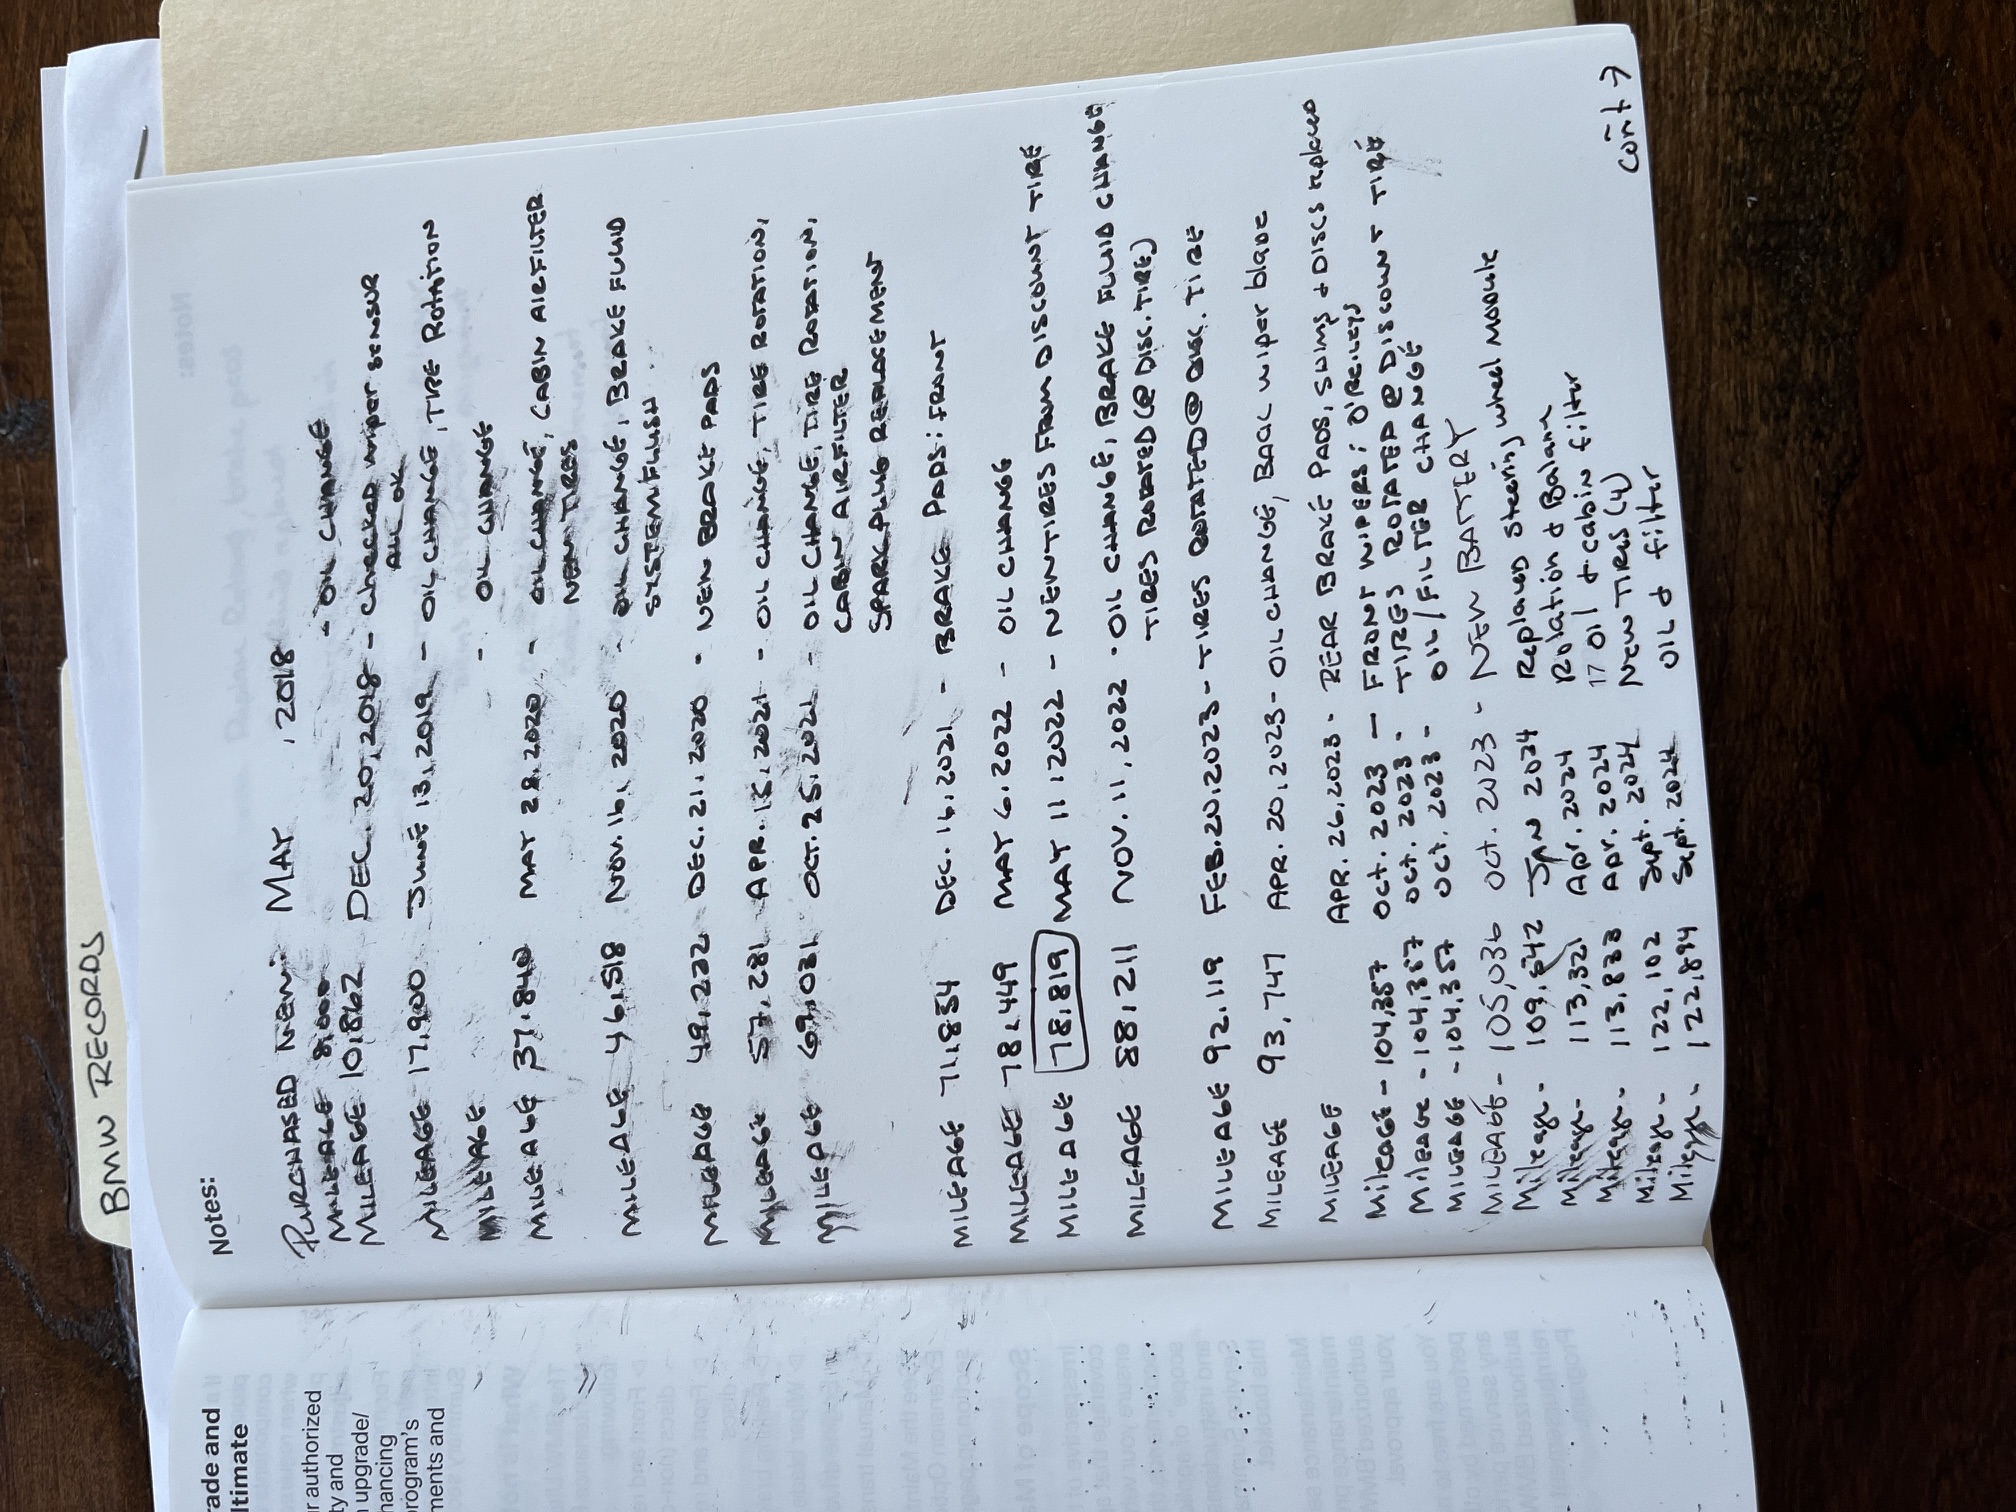 BMW RECORDS
Notes:
PURCHASED NEW: MAY , 2018
MILEAGE 8,000 - OIL CHANGE
MILEAGE 10,862 DEC. 20, 2018 - checked wiper sensor
ALL OK
MILEAGE 17,900 JUNE 13, 2019 - OIL CHANGE, TIRE ROTATION
MILEAGE - OIL CHANGE
MILEAGE 37,840 MAY 28, 2020 - OIL CHANGE, CABIN AIR FILTER
NEW TIRES
MILEAGE 46,518 NOV. 16, 2020 - OIL CHANGE, BRAKE FLUID
SYSTEM FLUSH
MILEAGE 48,232 DEC. 21, 2020 - NEW BRAKE PADS
MILEAGE 57,281 APR. 15, 2021 - OIL CHANGE, TIRE ROTATION,
MILEAGE 69,031 OCT. 25, 2021 - OIL CHANGE, TIRE ROTATION,
CABIN AIR FILTER
SPARK PLUG REPLACEMENT
MILEAGE 71,834 DEC. 16, 2021 - BRAKE PADS: FRONT
MILEAGE 78,449 MAY 6, 2022 - OIL CHANGE
MILEAGE 78,819 MAY 11, 2022 - NEW TIRES FROM DISCOUNT TIRE
MILEAGE 88,211 NOV. 11, 2022 - OIL CHANGE, BRAKE FLUID CHANGE
TIRES ROTATED (@ DISC. TIRE)
MILEAGE 92,119 FEB. 20, 2023 - TIRES ROTATED @ DISC. TIRE
MILEAGE 93,747 APR. 20, 2023 - OIL CHANGE, BACK wiper blade
MILEAGE APR. 26, 2023 - REAR BRAKE PADS, SHIMS & DISCS replaced
Mileage - 104,357 Oct. 2023 - FRONT WIPERS: O'Reileys
Mileage - 104,357 Oct. 2023 - TIRES ROTATED @ DISCOUNT TIRE
MILEAGE - 104,357 Oct. 2023 - OIL/FILTER CHANGE
MILEAGE - 105,036 Oct. 2023 - NEW BATTERY
Mileage - 109,642 JAN 2024 Replaced Steering wheel Module
Mileage - 113,321 Apr. 2024 Rotation & Balance
Mileage - 113,833 Apr. 2024 Oil & cabin filter
Mileage - 122,102 Sept. 2024 NEW TIRES (4)
Mileage - 122,894 Sept. 2024 OIL & filter
cont →
rade and
ltimate
r authorized
ty and
upgrade/
nancing
rogram's
ments and